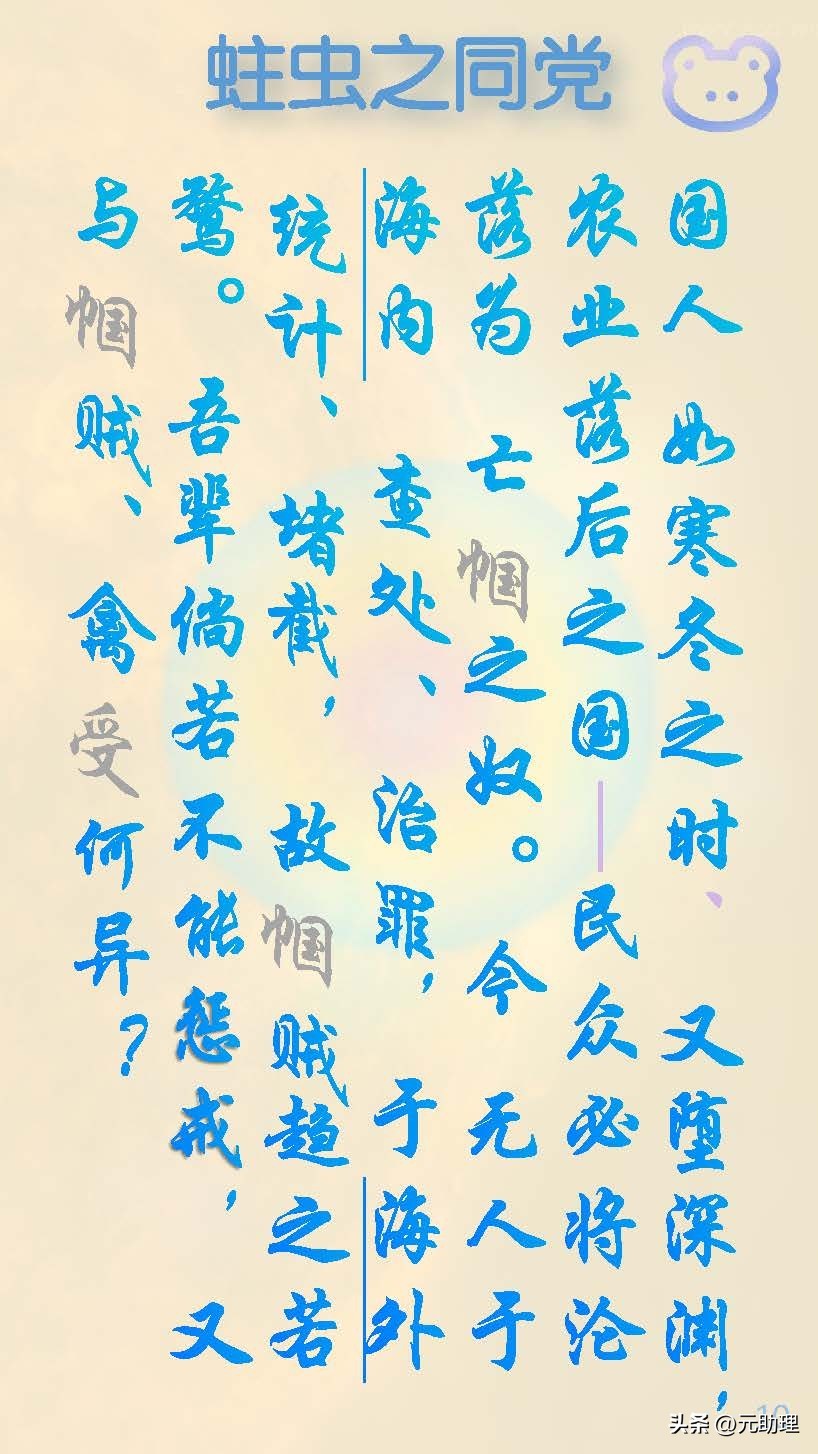 蛀虫之同党
国人如寒冬之时、又堕深渊，
农业落后之国—民众必将沦
落为亡帼之奴。今无人于
海内查处、治罪，于海外
统计、堵截，故帼贼趋之若
鹜。吾辈倘若不能惩戒，又
与帼贼、禽受何异？
10
头条 @元助理